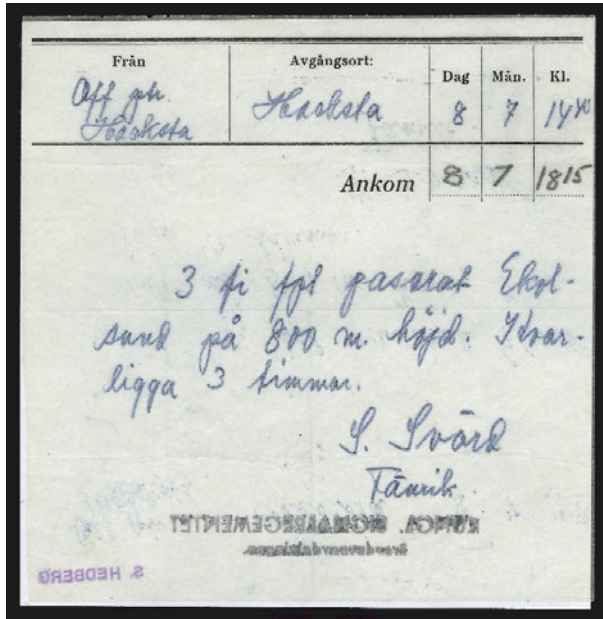 Från Avgångsort: Dag Mån. Kl.
Off ptr. Haksta 8 7 14 40
Haksta
Ankom 8 7 1815
3 fi fpl passerat Ekol-
sund på 800 m. höjd. Kvar-
ligga 3 timmar.
S. Svärd
Fänrik.
KUNGL. SIGNALREGEMENTET
S. HEDBERG